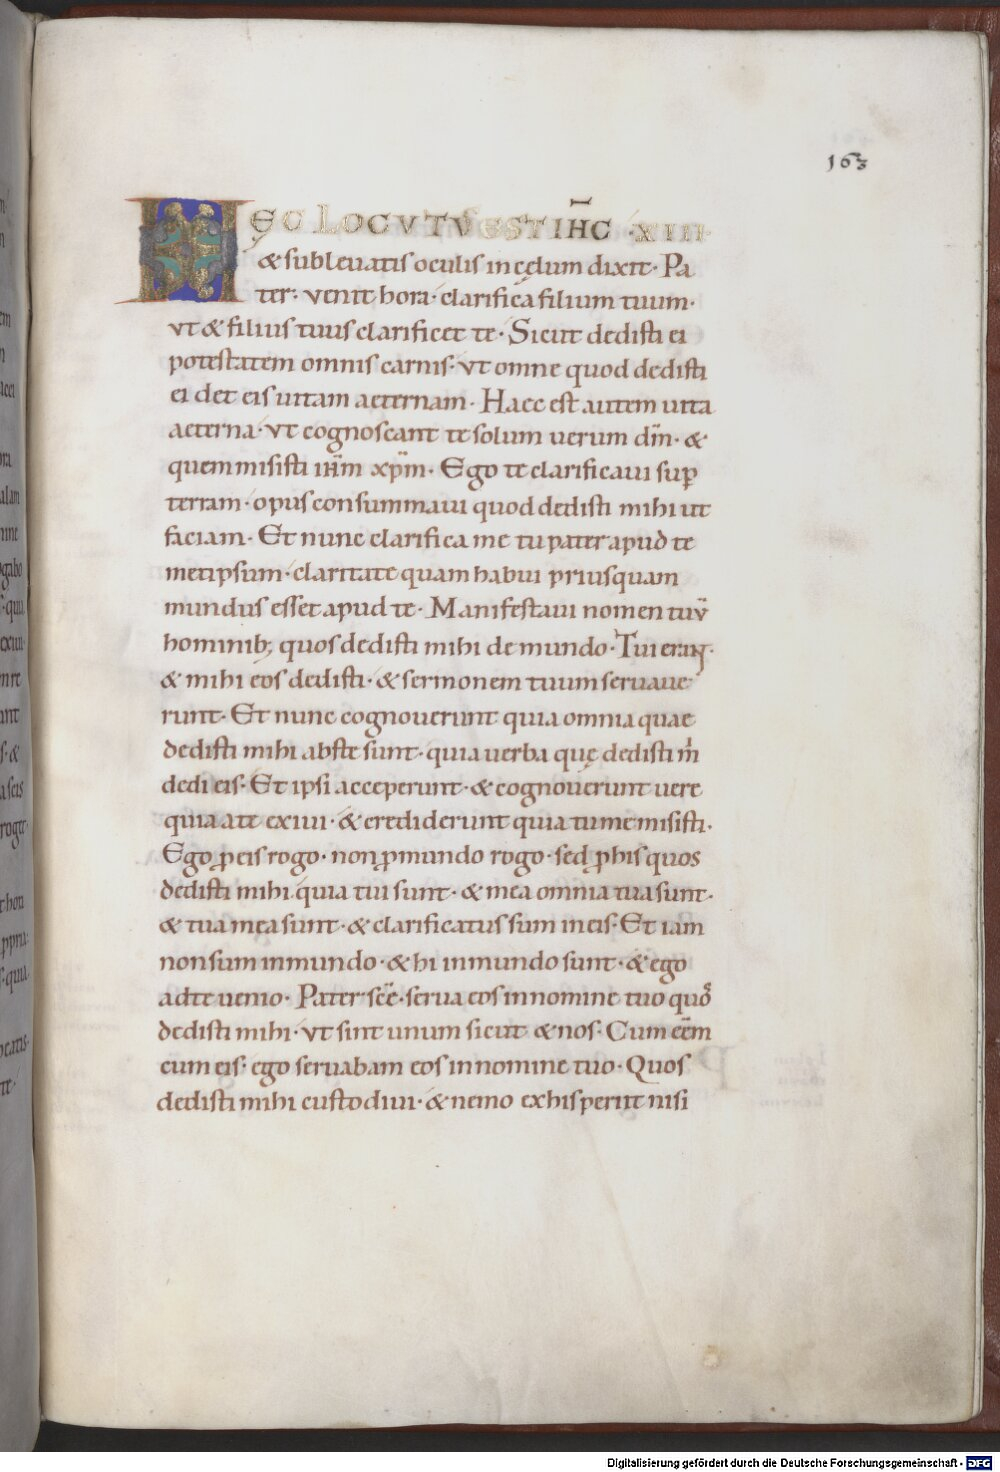 163
HĘC LOCVTVS EST IH̅C ·XIIII·
& subleuatis oculis in cęlum dixit· Pa
ter· venit hora· clarifica filium tuum·
vt & filius tuus clarificet te· Sicut dedisti ei
potestatem omnis carnis· vt omne quod dedisti
ei det eis uitam aeternam· Haec est autem uita
aeterna· vt cognoscant te solum uerum dm̅· &
quem misisti ihm̅ xpm̅· Ego te clarificaui sup̱
terram· opus consummaui quod dedisti mihi ut
faciam· Et nunc clarifica me tu pater apud te
metipsum· claritate quam habui priusquam
mundus esset apud te· Manifestaui nomen tuu̅
hominib; quos dedisti mihi de mundo· Tui eranꞇ·
& mihi eos dedisti· & sermonem tuum seruaue
runt· Et nunc cognouerunt quia omnia quae
dedisti mihi abste sunt· quia uerba quę dedisti m̅
dedi eis· Et ipsi acceperunt· & cognouerunt uere
quia a te exiui· & crediderunt quia tu me misisti·
Ego ꝓ eis rogo· non ꝓ mundo rogo· sed ꝓ his quos
dedisti mihi· quia tui sunt· & mea omnia tua sunt·
& tua mea sunt· & clarificatus sum in eis· Et iam
non sum in mundo· & hi in mundo sunt· & ego
ad te uenio· Pater sc̅e· serua eos in nomine tuo quos
dedisti mihi· vt sint unum sicut & nos· Cum eēm
cum eis· ego seruabam eos in nomine tuo· Quos
dedisti mihi custodiui· & nemo ex his periit nisi
Digitalisierung gefördert durch die Deutsche Forschungsgemeinschaft - DFG